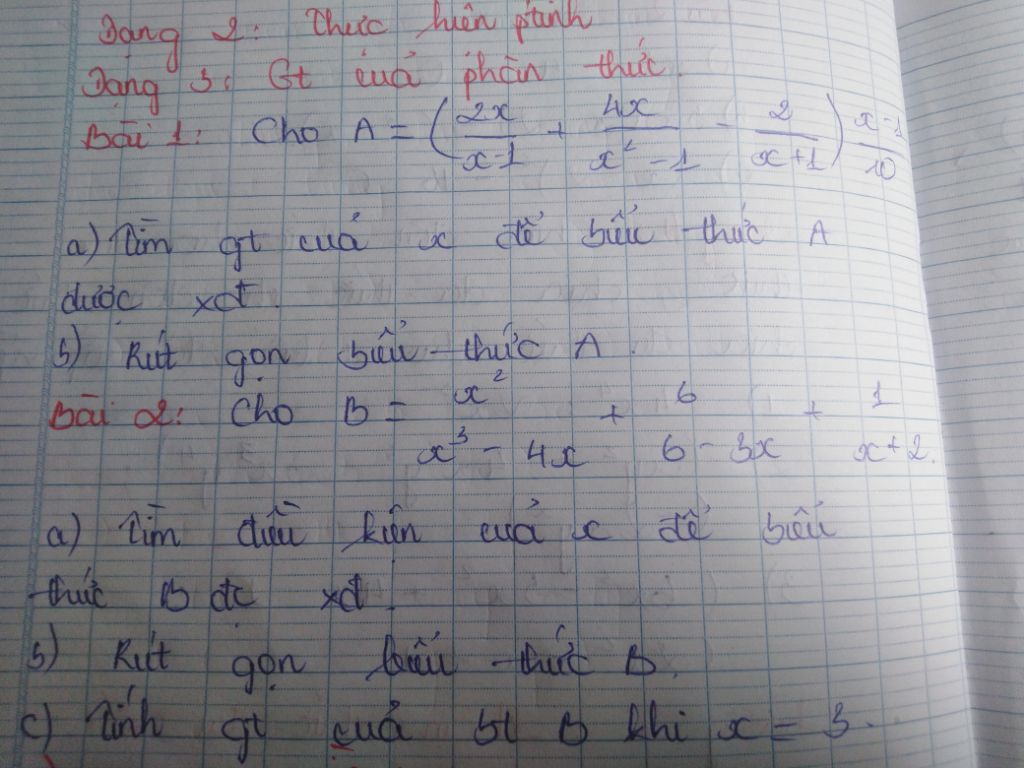 Dạng 2: Thực hiện ptính
Dạng 3: Gt của phân thức.
Bài 1: Cho A = (2x/(x-1) + 4x/(x²-1) - 2/(x+1)) (x-1)/10
a) Tìm gt của x để biểu thức A
được xđ.
b) Rút gọn biểu thức A.
Bài 2: Cho B = x²/(x³-4x) + 6/(6-3x) + 1/(x+2).
a) Tìm điều kiện của x để biểu
thức B đc xđ.
b) Rút gọn biểu thức B.
c) Tính gt của bt B khi x = 3.